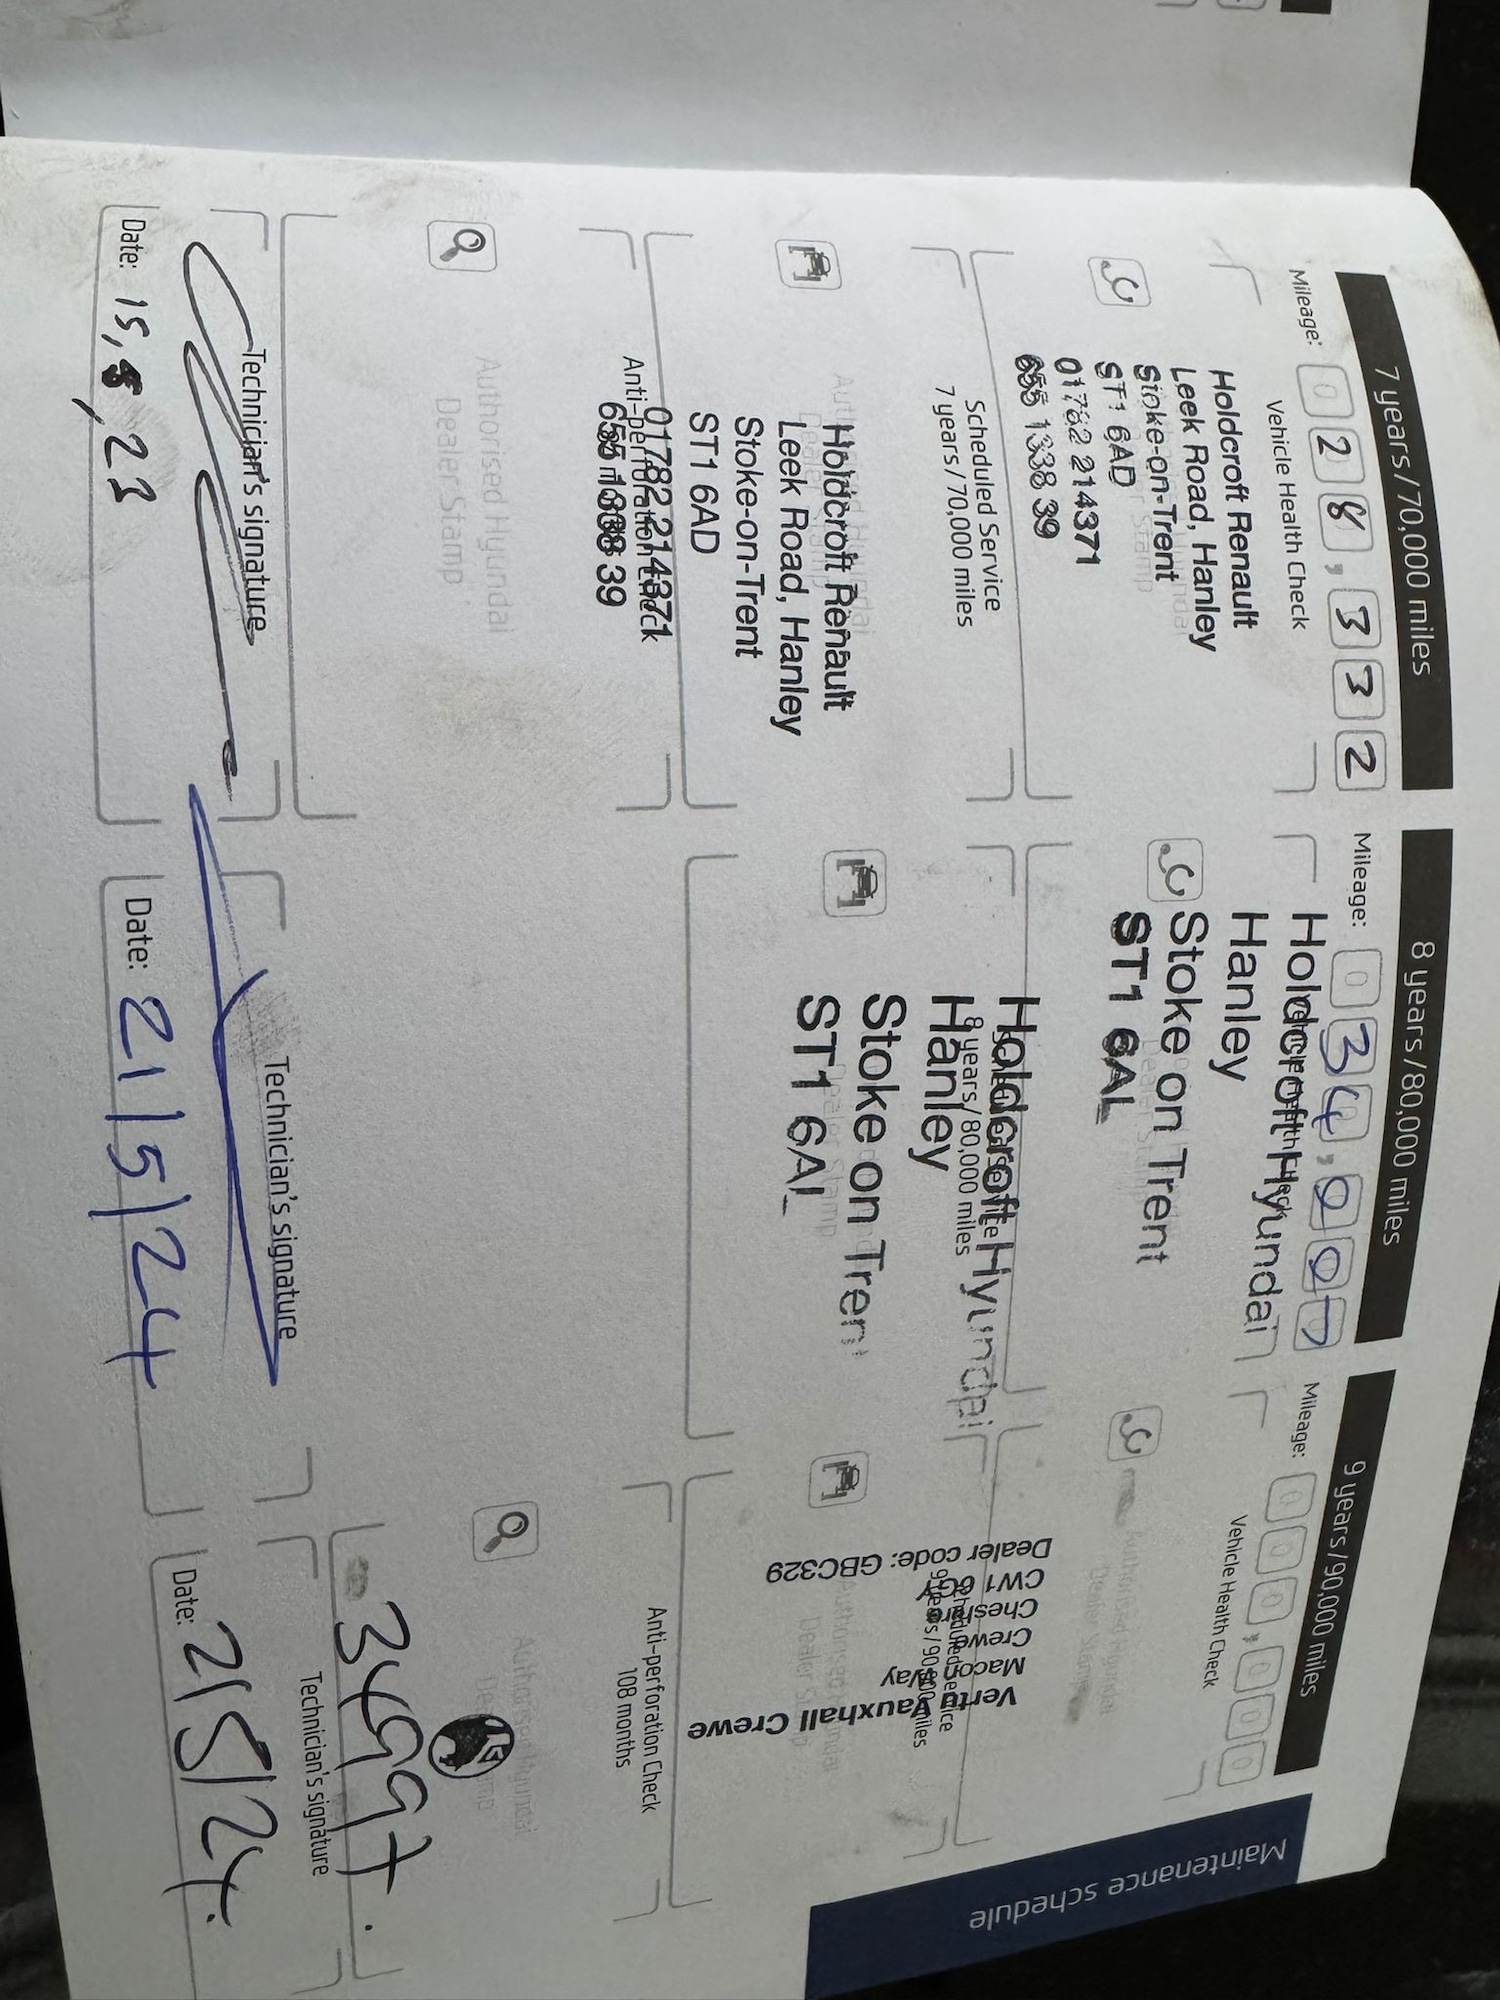 7 years / 70,000 miles
Mileage: 0 2 8 , 3 3 2
Vehicle Health Check
Holdcroft Renault
Leek Road, Hanley
Stoke-on-Trent
ST1 6AD
01782 214371
655 1338 39
Scheduled Service
7 years / 70,000 miles
Holdcroft Renault
Leek Road, Hanley
Stoke-on-Trent
ST1 6AD
01782 214371
Anti-perforation Check
655 1338 39
Authorised Hyundai
Dealer Stamp
Technician's signature
Date: 15,8,23
8 years / 80,000 miles
Mileage: 0 3 4 , 0 0 7
Holdcroft Hyundai
Hanley
Stoke on Trent
ST1 6AL
Holdcroft Hyundai
8 years / 80,000 miles
Hanley
Stoke on Trent
ST1 6AL
Technician's signature
Date: 21/5/24
9 years / 90,000 miles
Mileage: 0 0 0 , 0 0 0
Vehicle Health Check
Authorised Hyundai
Dealer Stamp
Scheduled Service
9 years / 90,000 miles
Vertu Vauxhall Crewe
Macon Way
Crewe
Cheshire
CW1 6GY
Dealer code: GBC329
Authorised Hyundai
Dealer Stamp
Anti-perforation Check
108 months
Authorised Hyundai
Technician's signature
Maintenance schedule